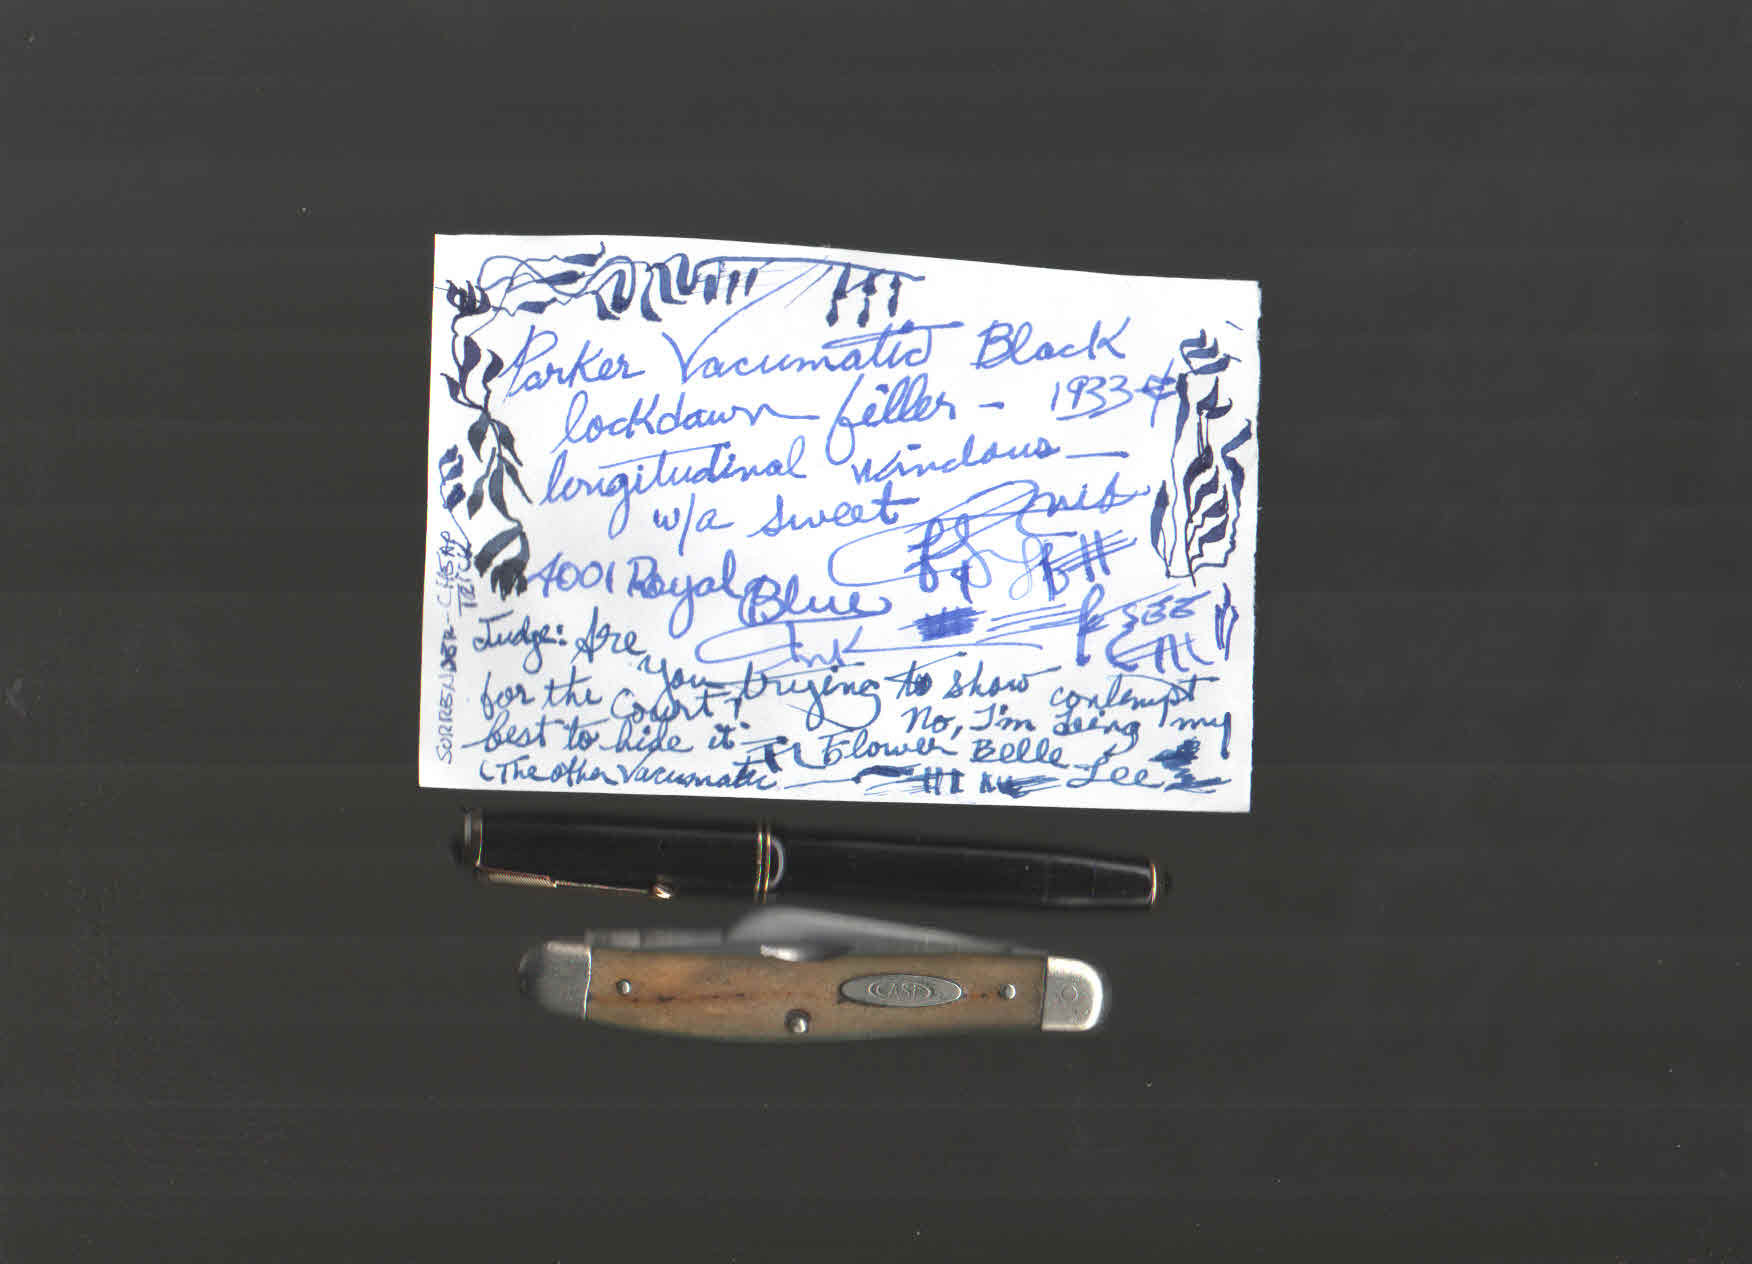 Parker Vacumatic Black
lockdown filler - 1933
longitudinal windows -
w/a sweet
4001 Royal
Blue
Ink
Judge: Are
you trying to show contempt
for the Court?
No, I'm doing my
best to hide it
Flower Belle
Lee
(The other Vacumatic
SURRENDER - CHEAP
TRICK
CASE